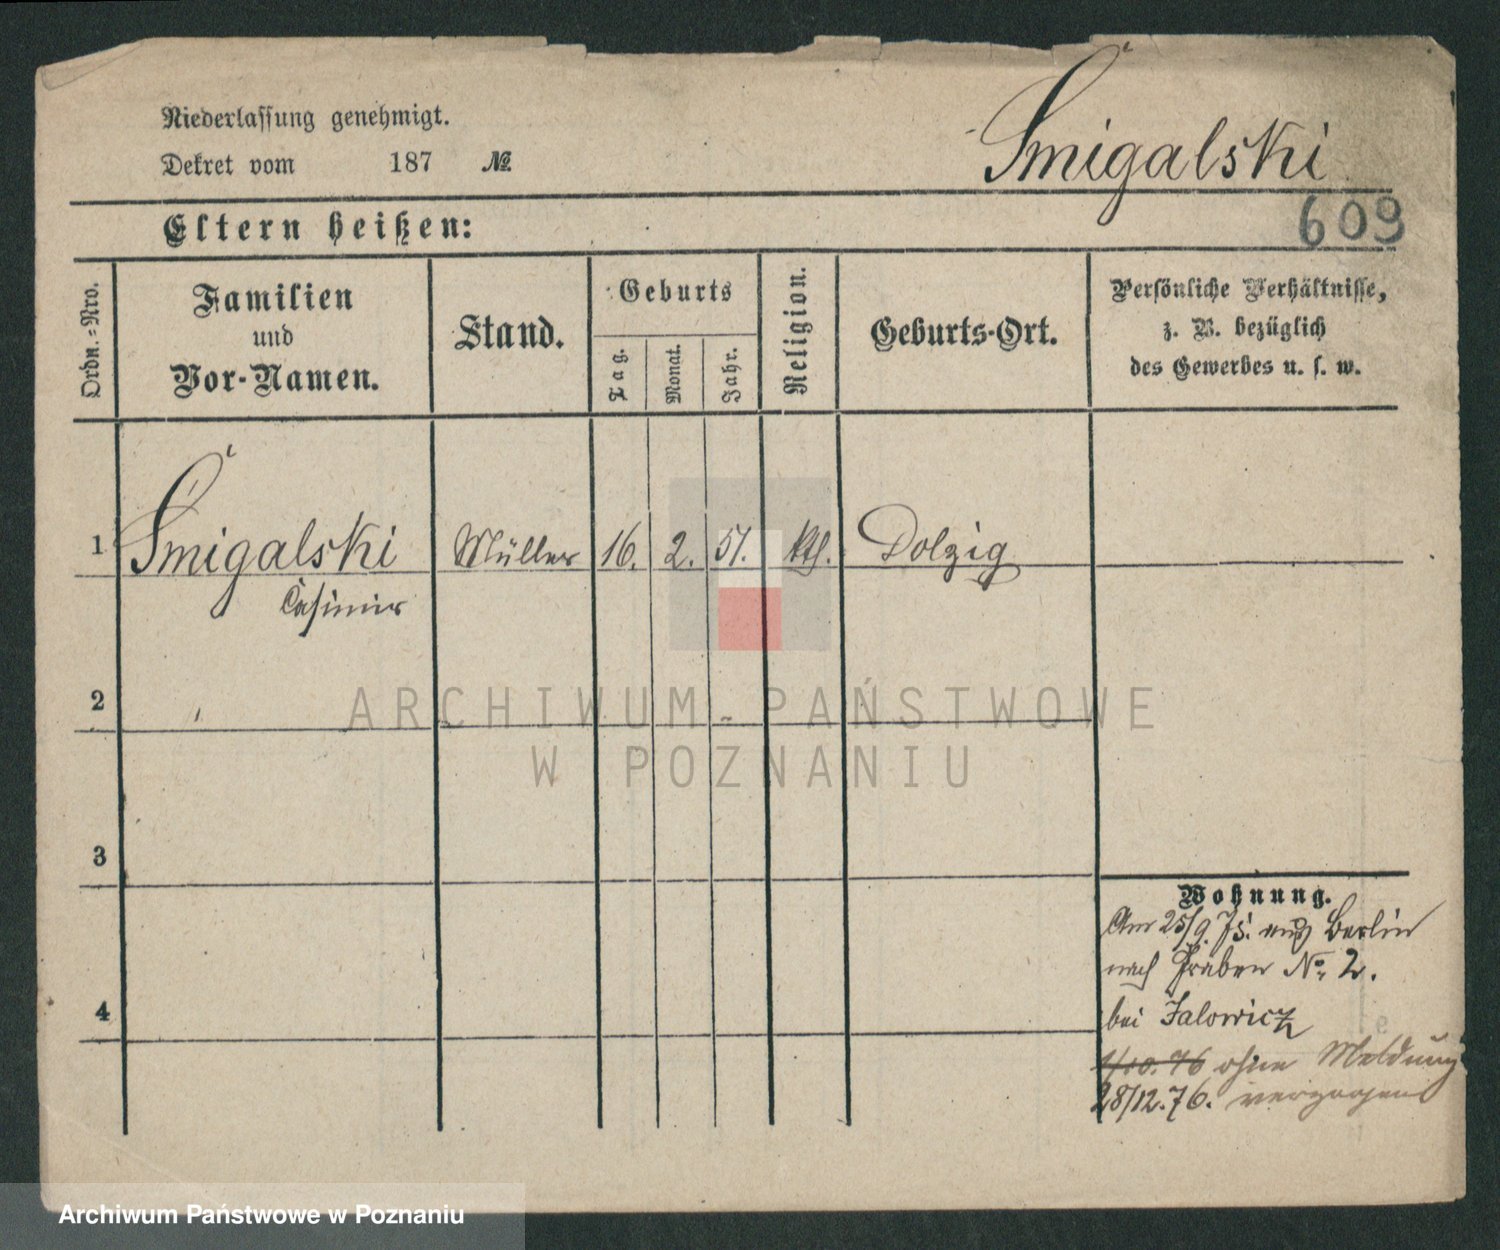 Niederlassung genehmigt.
Dekret vom 187 №
Śmigalski
609
Eltern heißen:
Ordn.-Nro.
Familien
und
Vor-Namen.
Stand.
Geburts
Tag.
Monat.
Jahr.
Religion.
Geburts-Ort.
Persönliche Verhältnisse,
z. B. bezüglich
des Gewerbes u. s. w.
1 Śmigalski Müller 16. 2. 51. kth. Dolzig
Casimir
2
ARCHIWUM PAŃSTWOWE
W POZNANIU
3
Wohnung.
Am 25/9. 75. aus Berlin
nach Graben No. 2.
4
bei Jalowicz
1/10. 76 ohne Meldung
28/12. 76. verzogen
Archiwum Państwowe w Poznaniu